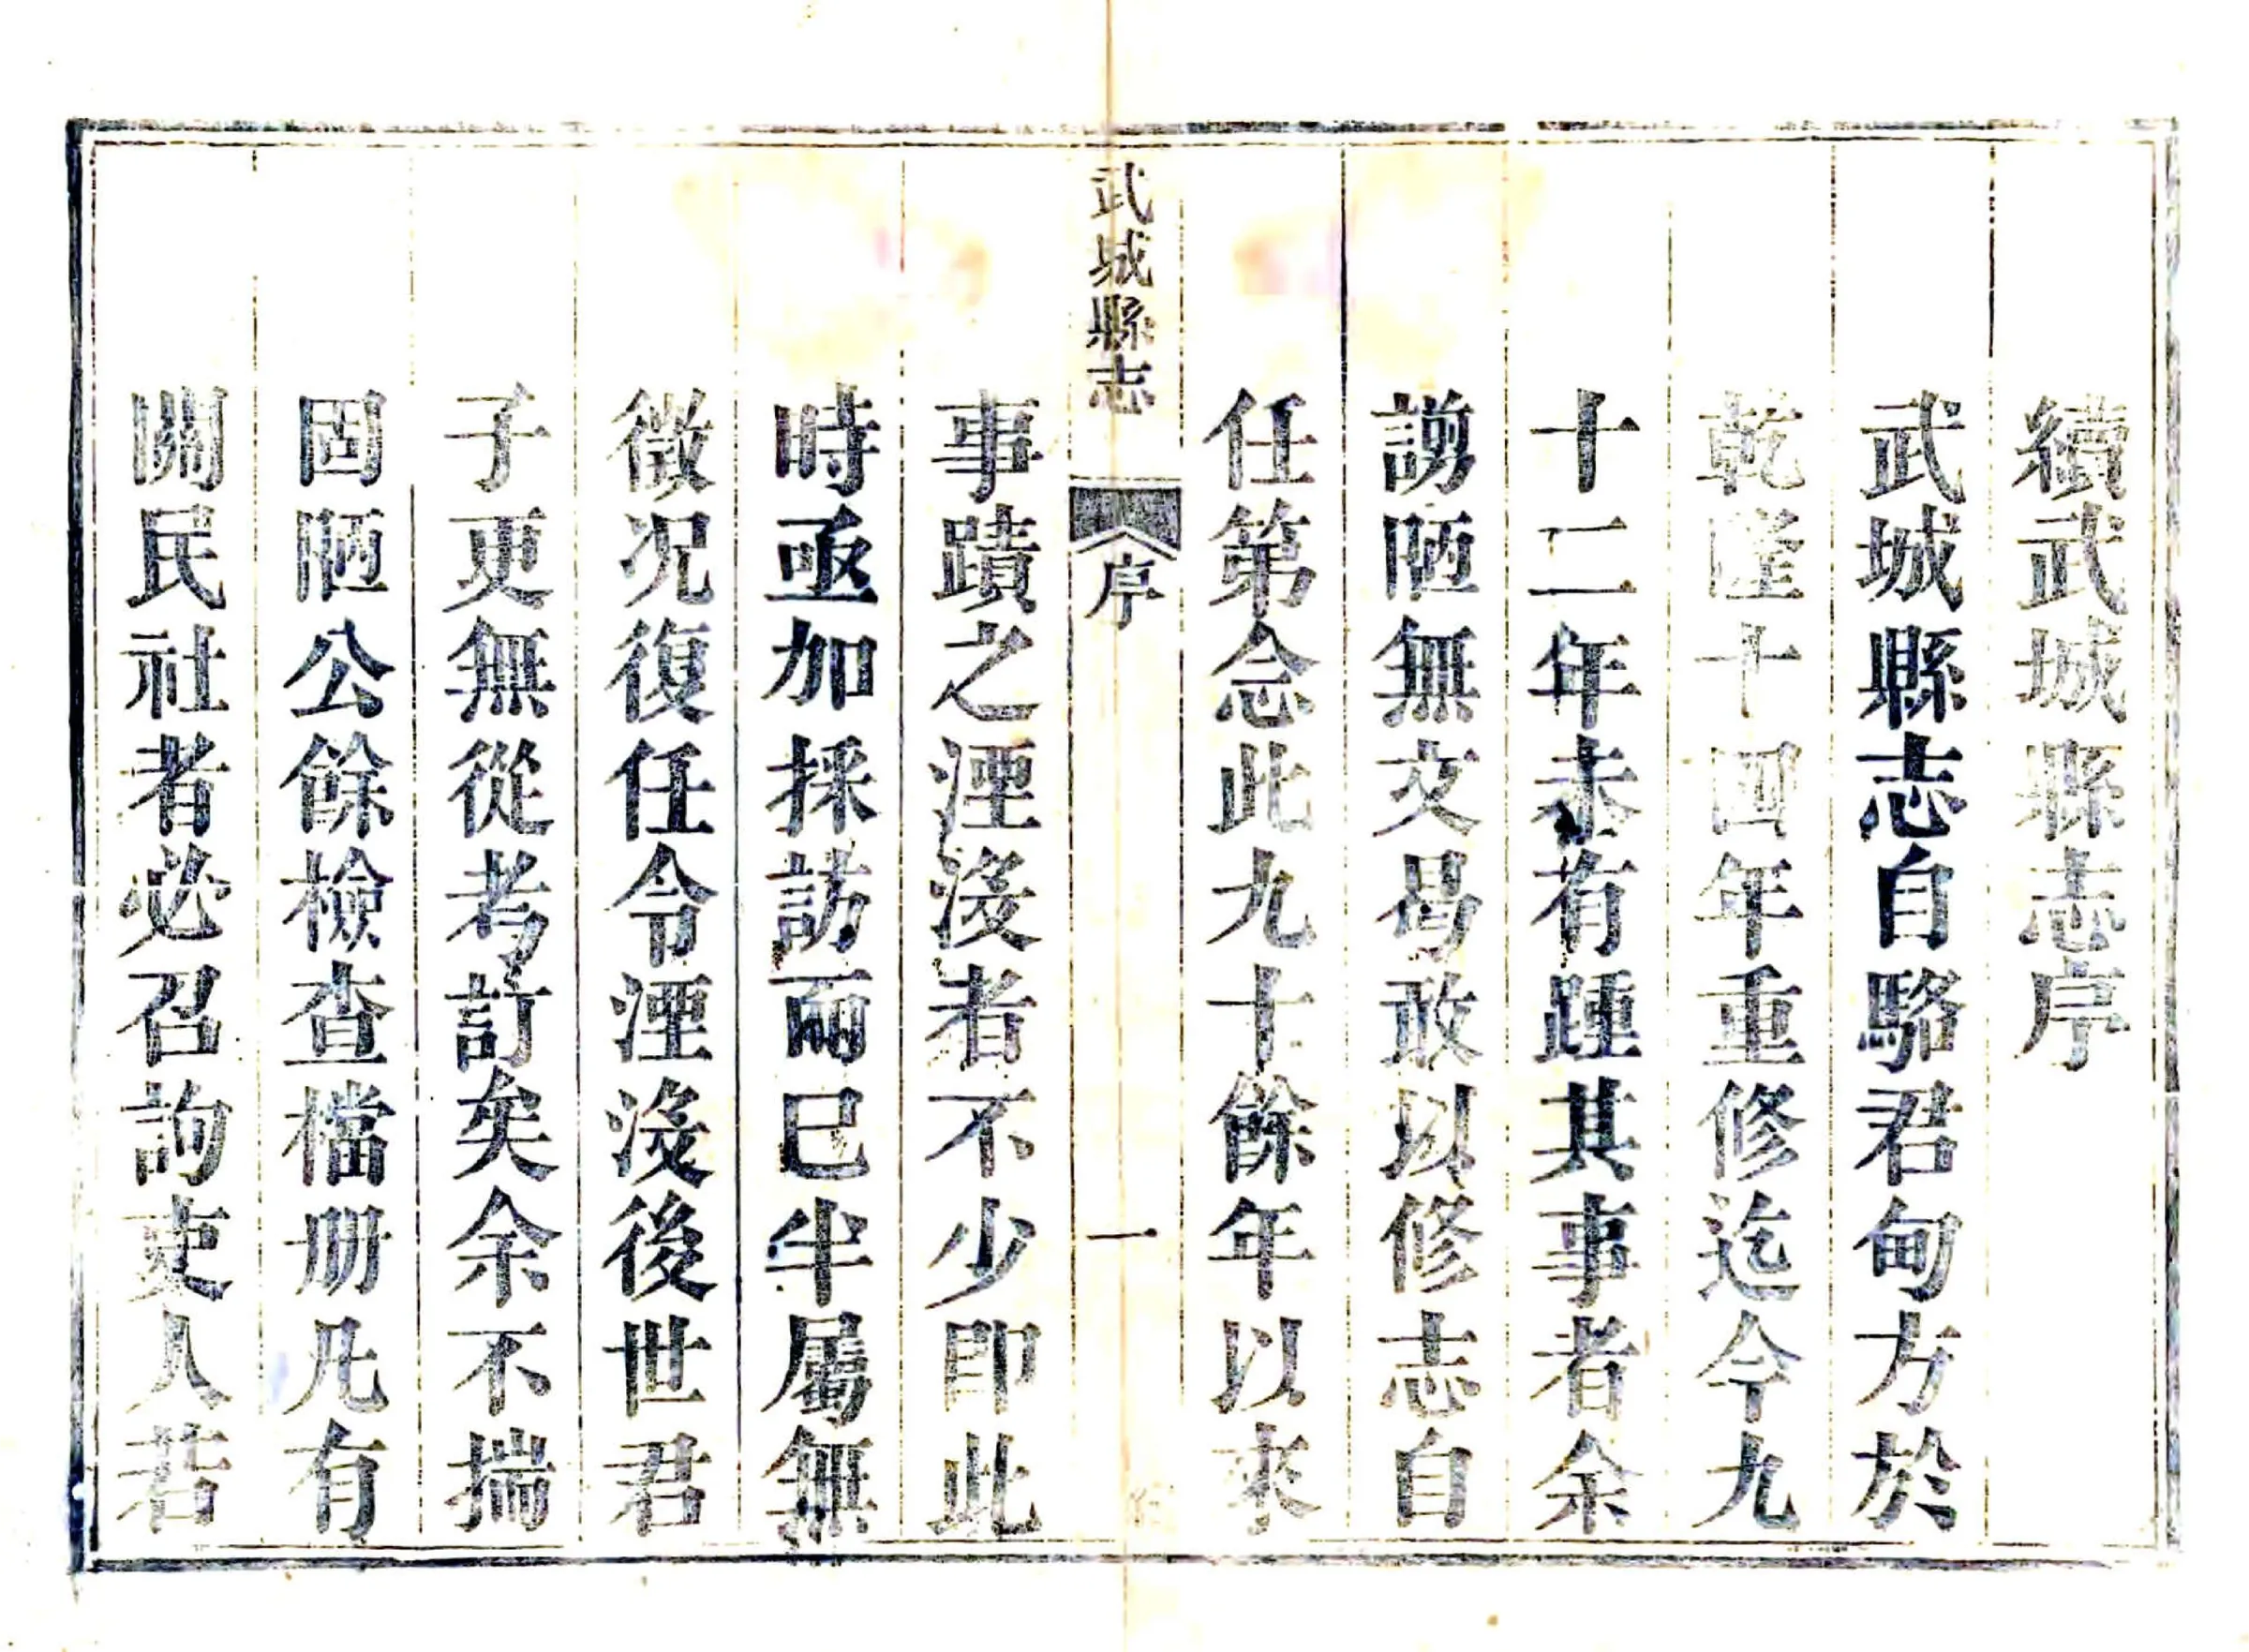 續武城縣志序
武城縣志自駱君甸方於
乾隆十四年重修迄今九
十二年未有踵其事者余
謭陋無文曷敢以修志自
任第念此九十餘年以來
武城縣志
序
一
事蹟之湮沒者不少即此
時亟加採訪而巳半屬無
徵况復任令湮沒後世君
子更無從考訂矣余不揣
固陋公餘檢查檔册凡有
關民社者必召詢吏人若